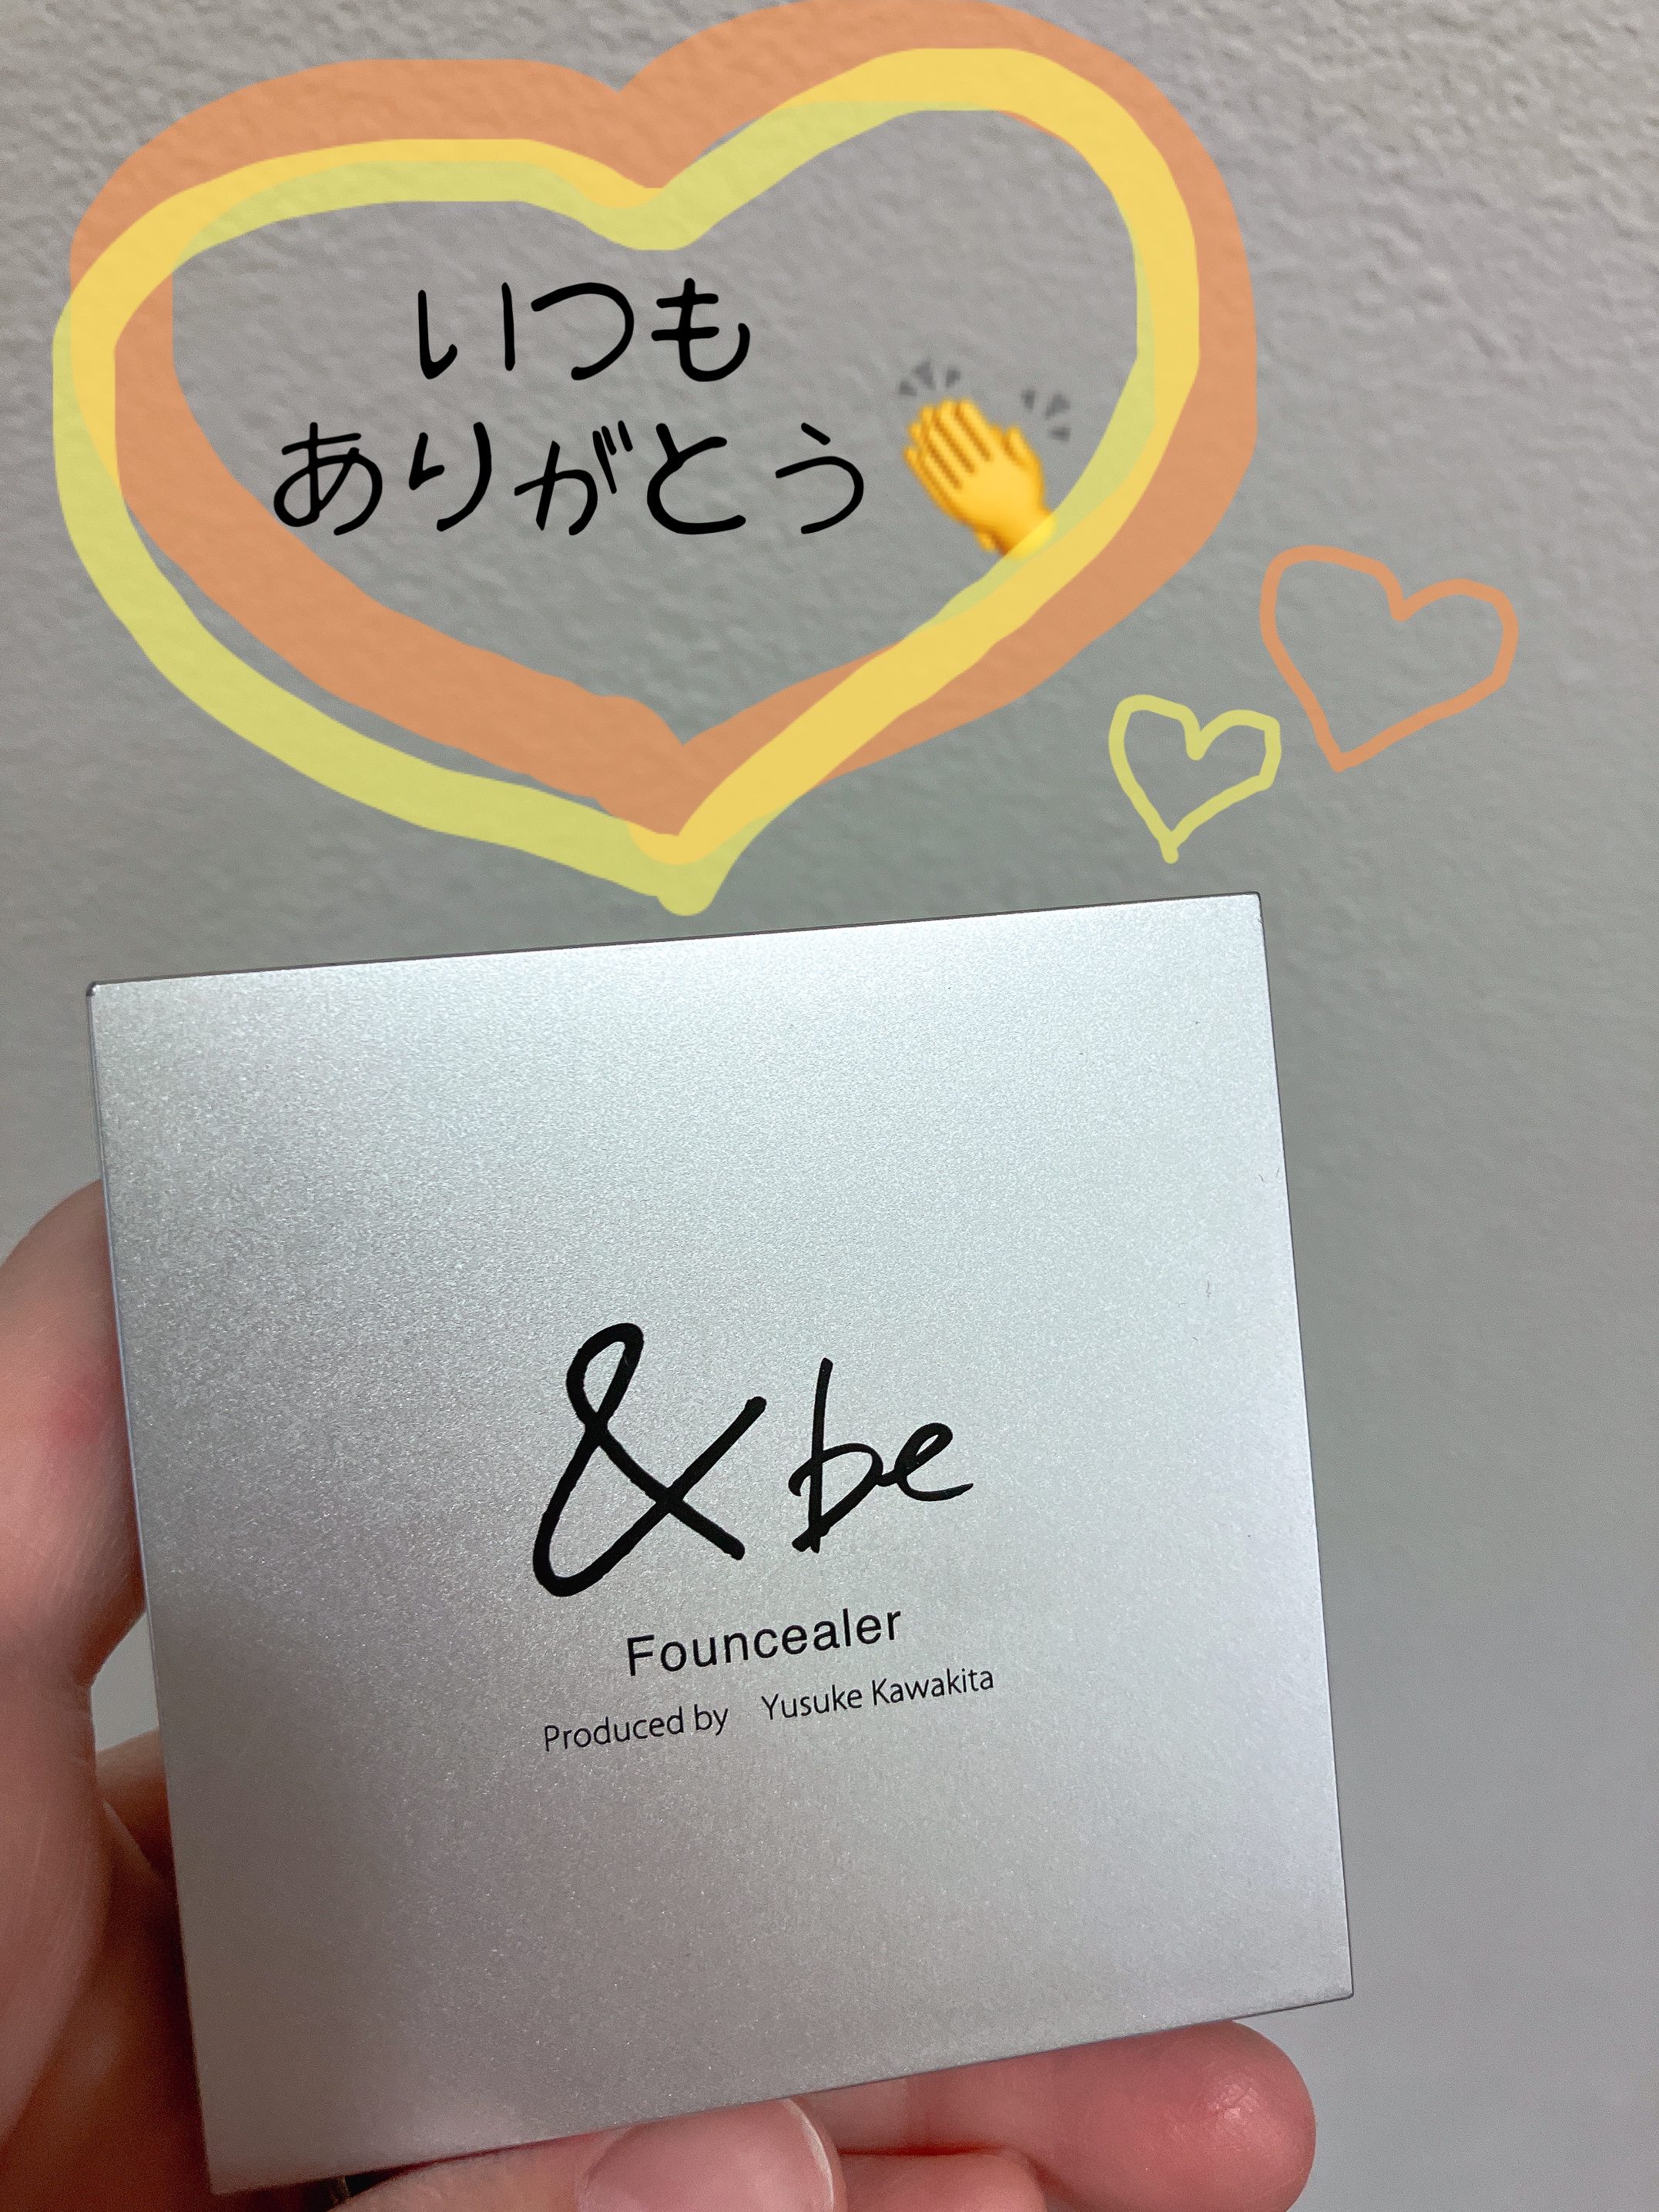 いつも
ありがとう👏
&be
Founcealer
Produced by Yusuke Kawakita